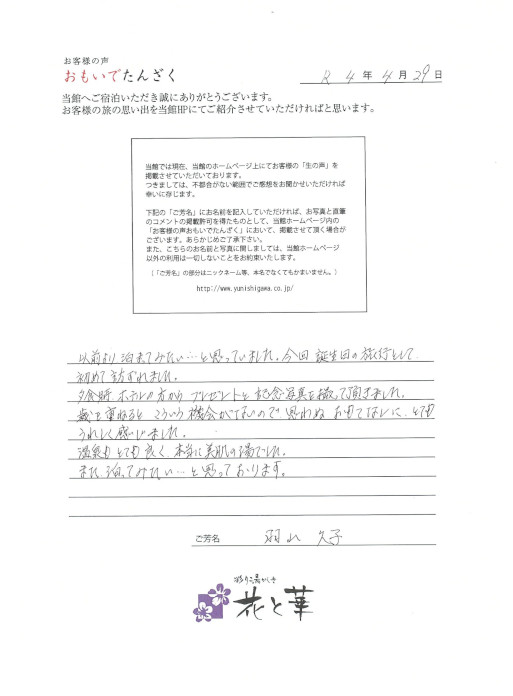 お客様の声
おもいでたんざく
R 4 年 4 月 29 日
当館へご宿泊いただき誠にありがとうございます。
お客様の旅の思い出を当館HPにてご紹介させていただければと思います。
当館では現在、当館のホームページ上にてお客様の「生の声」を
掲載させていただいております。
つきましては、不都合がない範囲でご感想をお聞かせいただければ
幸いに存じます。
下記の「ご芳名」にお名前を記入していただければ、お写真と直筆
のコメントの掲載許可を得たものとして、当館ホームページ内の
「お客様の声おもいでたんざく」において、掲載させて頂く場合が
ございます。あらかじめご了承下さい。
また、こちらのお名前と写真に関しましては、当館ホームページ
以外の利用は一切しないことをお約束いたします。
（「ご芳名」の部分はニックネーム等、本名でなくてもかまいません。）
http://www.yunishigawa.co.jp/
以前より泊まてみたい…と思っていました。今回誕生日の旅行として
初めて訪ずれました。
夕食時、ホテルの方から プレゼントと 記念写真を撮って頂きました。
歳を重ねると こういう機会がないので 思わぬ おもてなしに、とても
うれしく感じました。
温泉も とても良く、本当に美肌の湯でした。
また 泊ってみたい…と思っております。
ご芳名 羽山 久子
彩り湯かしき
花と華